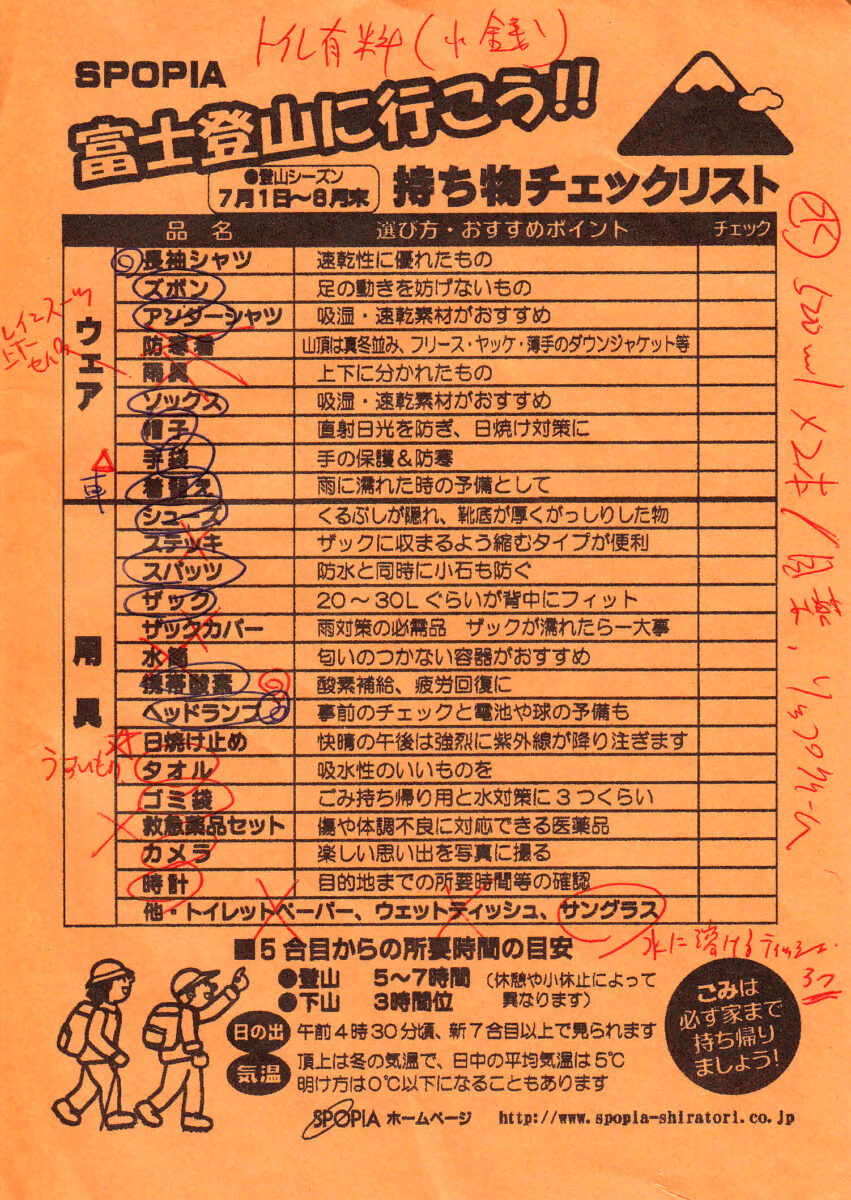 トイレ有料(小銭)
SPOPIA
富士登山に行こう!!
●登山シーズン
7月1日～8月末
持ち物チェックリスト
品名 選び方・おすすめポイント チェック
ウェア
長袖シャツ 速乾性に優れたもの
ズボン 足の動きを妨げないもの
アンダーシャツ 吸湿・速乾素材がおすすめ
防寒着 山頂は真冬並み、フリース・ヤッケ・薄手のダウンジャケット等
雨具 上下に分かれたもの
ソックス 吸湿・速乾素材がおすすめ
帽子 直射日光を防ぎ、日焼け対策に
手袋 手の保護&防寒
着替え 雨に濡れた時の予備として
レインスーツ
車
用具
シューズ くるぶしが隠れ、靴底が厚くがっしりした物
ステッキ ザックに収まるよう縮むタイプが便利
スパッツ 防水と同時に小石も防ぐ
ザック 20～30Lぐらいが背中にフィット
ザックカバー 雨対策の必需品 ザックが濡れたら一大事
水筒 匂いのつかない容器がおすすめ
携帯酸素 酸素補給、疲労回復に
ヘッドランプ 事前のチェックと電池や球の予備も
日焼け止め 快晴の午後は強烈に紫外線が降り注ぎます
タオル 吸水性のいいものを
ゴミ袋 ごみ持ち帰り用と水対策に3つくらい
救急薬品セット 傷や体調不良に対応できる医薬品
カメラ 楽しい思い出を写真に撮る
時計 目的地までの所要時間等の確認
他・トイレットペーパー、ウェットティッシュ、サングラス
うすいもの
水 500ml×2本/
水に溶けるティッシュ
3つ
■5合目からの所要時間の目安
●登山 5～7時間 (休憩や小休止によって
●下山 3時間位 異なります)
日の出 午前4時30分頃、新7合目以上で見られます
気温 頂上は冬の気温で、日中の平均気温は5℃
明け方は0℃以下になることもあります
ごみは
必ず家まで
持ち帰り
ましょう!
SPOPIA ホームページ http://www.spopia-shiratori.co.jp